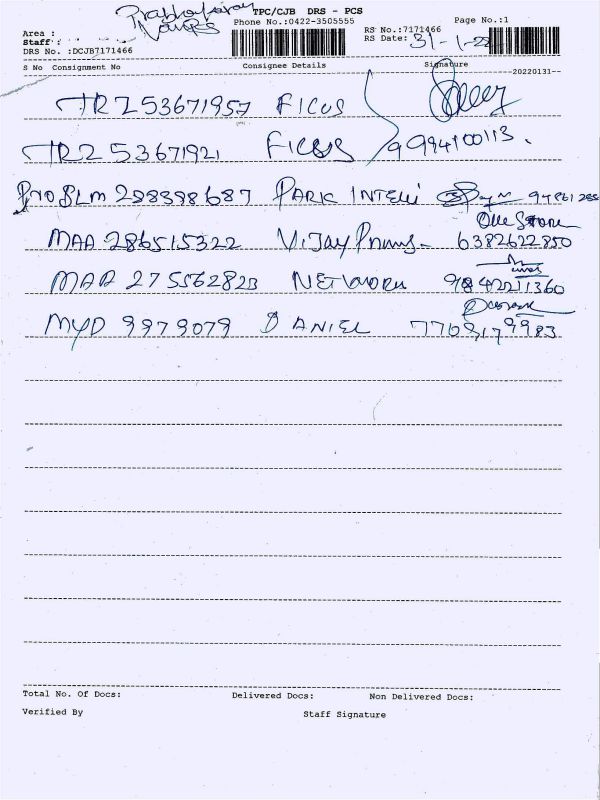 TPC/CJB DRS - PCS
Page No.:1
Area :
Phone No.:0422-3505555
RS No.:7171466
Staff :
RS Date: 31-1-22
DRS No. :DCJB7171466
S No Consignment No Consignee Details Signature
--20220131--
TRZ 53671957 FICUS
TRZ 53671921 FICUS 9994100113.
BLM 298398687 PARK INTELLI
MAA 286515322 Vijay 6382622850
MAA 275562823 NETWORK 9842211360
MYD 9979079 DANIEL
Total No. Of Docs: Delivered Docs: Non Delivered Docs:
Verified By Staff Signature